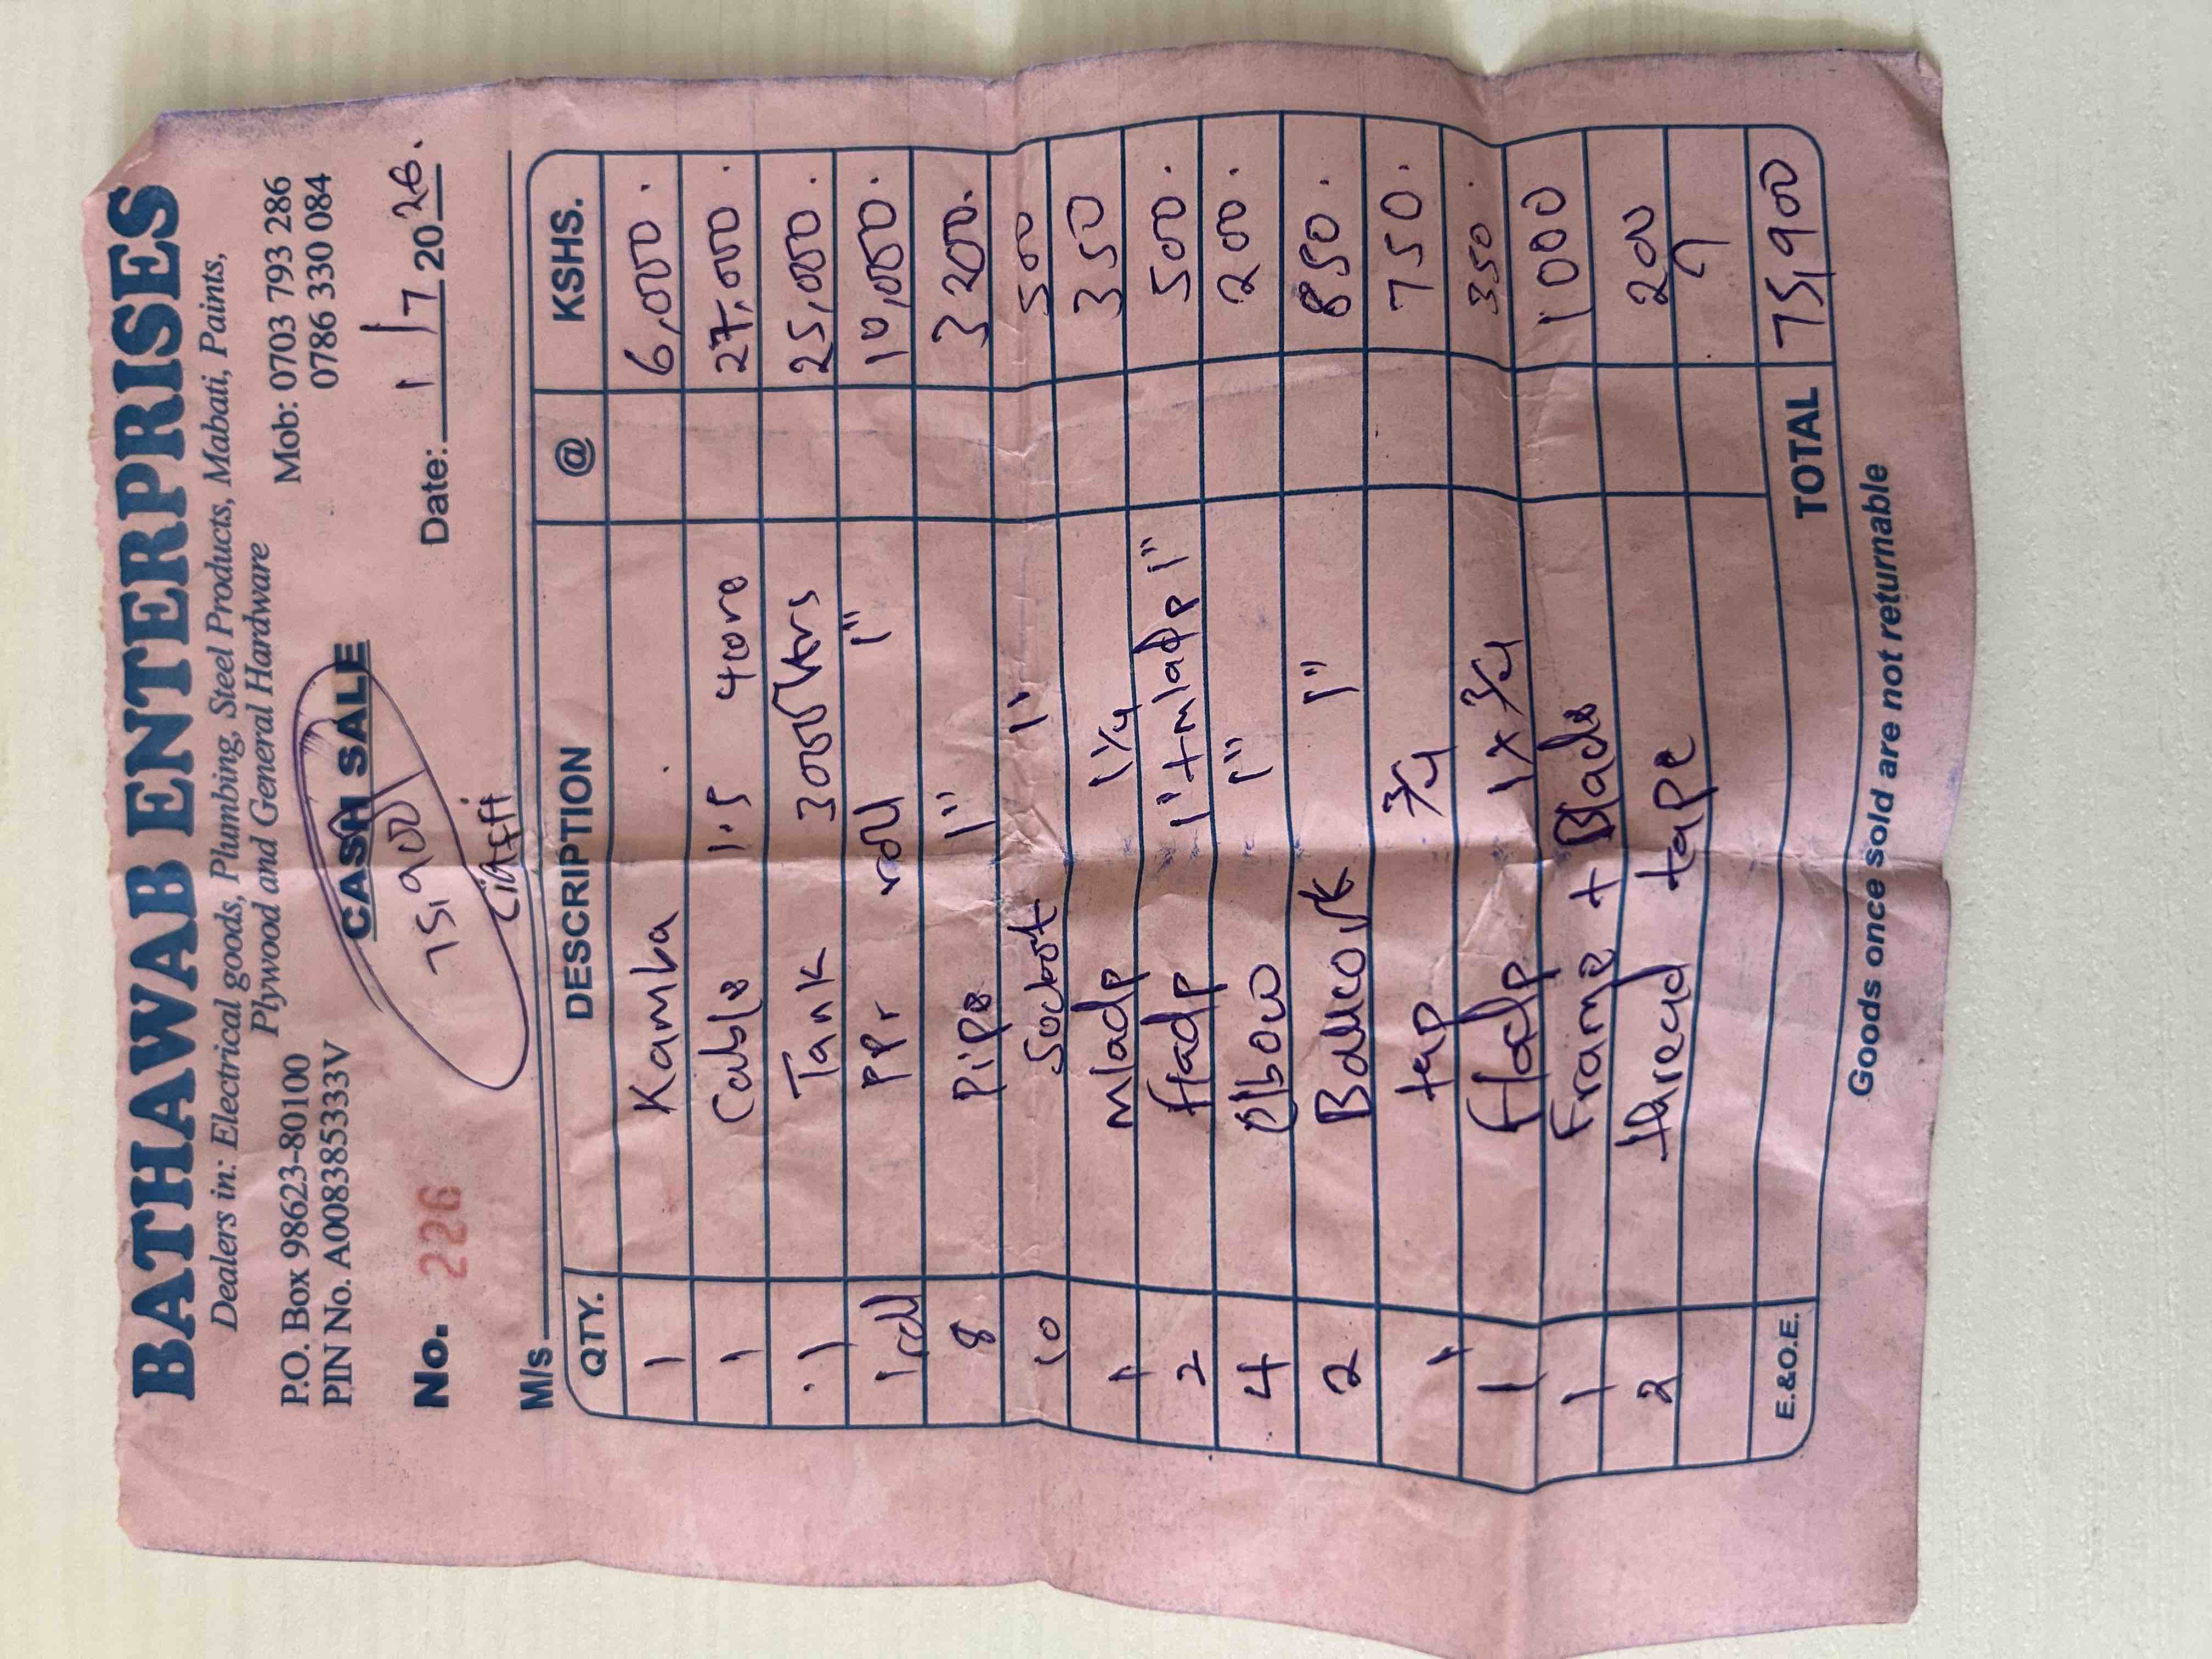 BATHAWAB ENTERPRISES
Dealers in: Electrical goods, Plumbing, Steel Products, Mabati, Paints,
Plywood and General Hardware
P.O. Box 98623-80100 Mob: 0703 793 286
PIN No. A008385333V 0786 330 084
CASH SALE
75,900
No. 226 Date: 1/7 2026.
M/s
QTY. DESCRIPTION @ KSHS.
1 Kamba 6,000.
1 Cable 1.5 4core 27,000.
1 Tank 3000ltrs 25,000.
1roll PPr roll 1" 10,000.
8 Pipe 1" 3200.
10 Socket 1" 500
1 Mladp 1 1/4 350
2 ffadp 1"+mladp 1" 500.
4 Elbow 1" 200.
2 Ballcork 1" 850.
1 tap 3/4 750.
1 ffadp 1x3/4 350.
1 Frame + Blade 1000
2 thread tape 200
E.&O.E. TOTAL 75,900
Goods once sold are not returnable